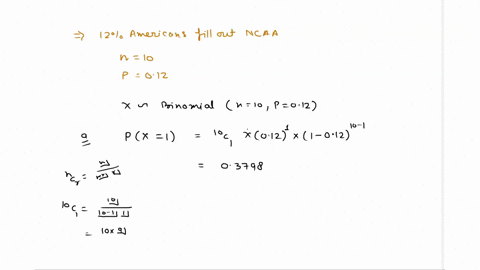 ⇒ 12% Americans fill out NCAA
n = 10
P = 0.12
X ~ Binomial (n=10, P=0.12)
a P(X=1) = ¹⁰C₁ × (0.12)¹ × (1-0.12)¹⁰⁻¹
= 0.3798
ⁿCᵣ =
¹⁰C₁ = 10⌋ / 10-1⌋ 1⌋
= 10×9⌋